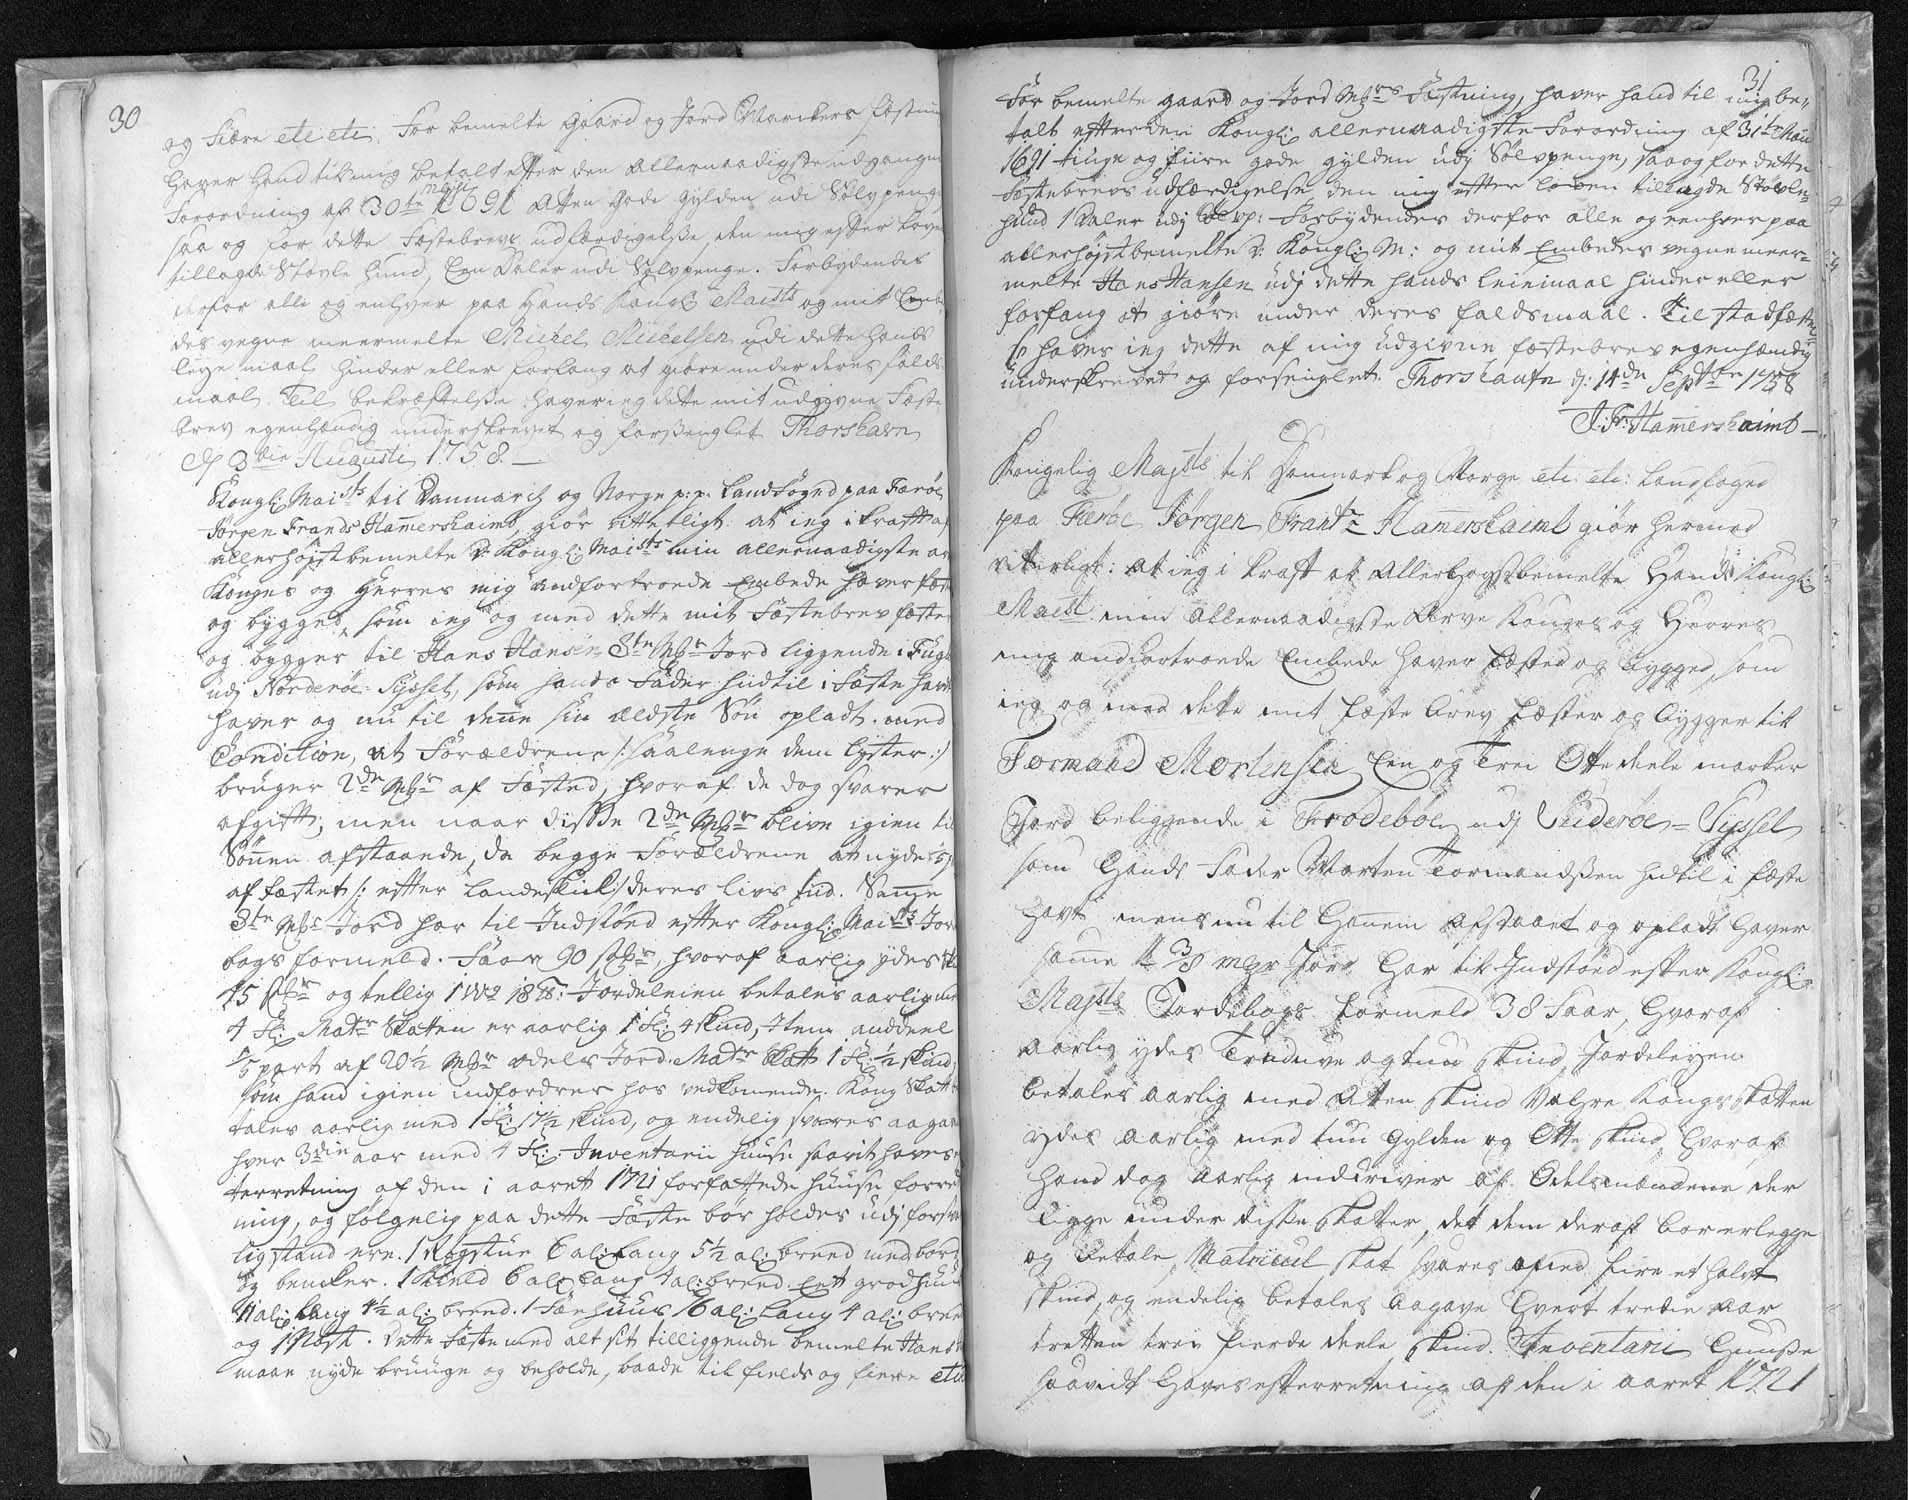 30
og Fiære etc etc. For bemelte Gaard og Jord Marckers fæstning
haver hand til mig betalt efter den allernaadigste udgangne
Forordning af 30te Maji 1691 Atten gode gylden udi Sølvpenge
saa og for dette Fæstebrevs udfærdigelsse, den mig efter loven
tillagde Støvle hund, Een Daler udi Sølvpenge. Forbydendes
derfor alle og enhver paa Hands Kongl: Maists og mit Embe
des vegne meermelte Michel Michelsen udi dette hands
leye maal hinder eller forfang at giøre under deres falds
maal. Til bekræftelsse haver ieg dette mit udgivne Fæste
brev egenhændig underskrevet og forseiglet Thorshavn
d. 3die Augusti 1758.
Kongl: Maists til Danmarck og Norge p:p: Landfoged paa Færøe
Jørgen Frands Ham̄ershaimb, giør vitterligt: at ieg i krafft af
allerhøjstbemelte Dr: Kongl: Maists min allernaadigste arve
Konges og Herres mig andfortroede Embede haver fæst
og bygged, som ieg og med dette mit Fæstebrev fæster
og bygger til Hans Hansen 8te Mkr Jord liggende i Fugl
udj Norderøe-Syssel, som hands Fader hidtil i Fæste havt
haver og nu til den̄e sin ældste Søn opladt. med
Condition, at Forældrene /: saalenge dem lyster :/
bruger 2de Mkr af Fæsted, hvoraf de dog svarer
afgift, men naar disse 2de Mkr blive igien til
Søn̄en afstaaende, da begge Forældrene at nyde
af fæstet /: efter landsskik :/ deres livs tid. Sam̄e
8te Mkr Jord har til Indstød efter Kongl: Maists Jorde
bogs formeld. Faar 90 stkr, hvoraf aarlig ydes
15 stkr og tellig 1 Wo 18 lb: Jordeleien betales aarlig med
4 Fl: Matr Skatten er aarlig 1 Fl: 4 skind, Item anddeel
part af 20½ Mkr odels Jord. Matr Skatt 1 Fl: ½ skind
som hand igien indfordrer hos vedkomende. Kong Skatt
tales aarlig med 1 Fl: 17½ skind, og endelig svares aagave
hver 3die aar med 4 Fl: Inventarii huuse saavit haves
terretning af den i aaret 1721 forfattede huuse forret
ning, og følgelig paa dette Fæste bør holdes udj forsvar
lig stand ere. 1 Røgstue 6 al: lang 5½ al: breed med bord
og bencker. 1 Kield 6 al: lang 4 al: breed. Eet grodhuus
11 al: lang 4½ al: breed. 1 Fæehuus 16 al: lang 4 al: breed
og 1 Nøst. Dette Fæste med alt sit tilliggende bemelte Hans
maae nyde bruuge og beholde, baade til fields og fiære etc
31
For bemelte gaard og Jord Mkrs Fæstning, haver hand til mig be-
talt efter den Kongl: allernaadigste Forordning af 31te Maii
1691 tiuge og fiire gode gylden udj Sølvpenge, saa og for dette
Fæstebrevs udfærdigelse den mig efter loven tillagde Støvle-
hund 1 Daler udj Sølvp: Forbydendes derfor alle og eenhver paa
allerhøjstbemelte Dr: Kongl: M: og mit Embedes vegne meer-
melte Hans Hansen udj dette hands leiemaal hinder eller
forfang at giøre under deres faldsmaal. Til stadfæstel
se haver ieg dette af mig udgivne fæstebrev egenhændig
underskrevet og forseiglet. Thorshavn d: 14de Septbr 1758
J. Fr: Ham̄ershaimb
Kongelig Majsts til Danmark og Norge etc: etc: Landfoged
paa Færøe Jørgen Frantz Ham̄ershaimb giør hermed
viterligt: at ieg i kraft af Allerhøystbemelte Hands Kongl:
Maest min Allernaadigste Arve Konges og Herres
mig andfortroede Embede haver fæsted og bygged, som
ieg og med dette mit fæste brev fæster og bygger til
Tormand Mortensen Een og Trei Ottendeele marker
Jord beliggende i Frodebøe udj Suderøe-Syssel
som hands Fader Morten Tormandssen hidtil i fæste
havt mens nu til ham̄em afstaaet og opladt haver
sam̄e 1 3/8 mkr Jord har til Indstød efter Kongl:
Majsts Jordebogs formeld 38 Faar, hvoraf
aarlig ydes Trennde og tuu skind, Jordeleyen
betales aarlig med Atten skind Valgre Kongsskatten
ydes aarlig med tuu gylden og Otte skind, hvoraf
hand dog aarlig inddriver af Odelsmændene der
ligge under disse skatter, det dem deraf bør erlegge
og betale, Matricul skat svares med fiire et halvt
skind, og endelig betales Aagave hvert tredie Aar
tretten trei fierde deele skind. Inventarii huusse
saavidt haves efterretning af den i aaret 1721